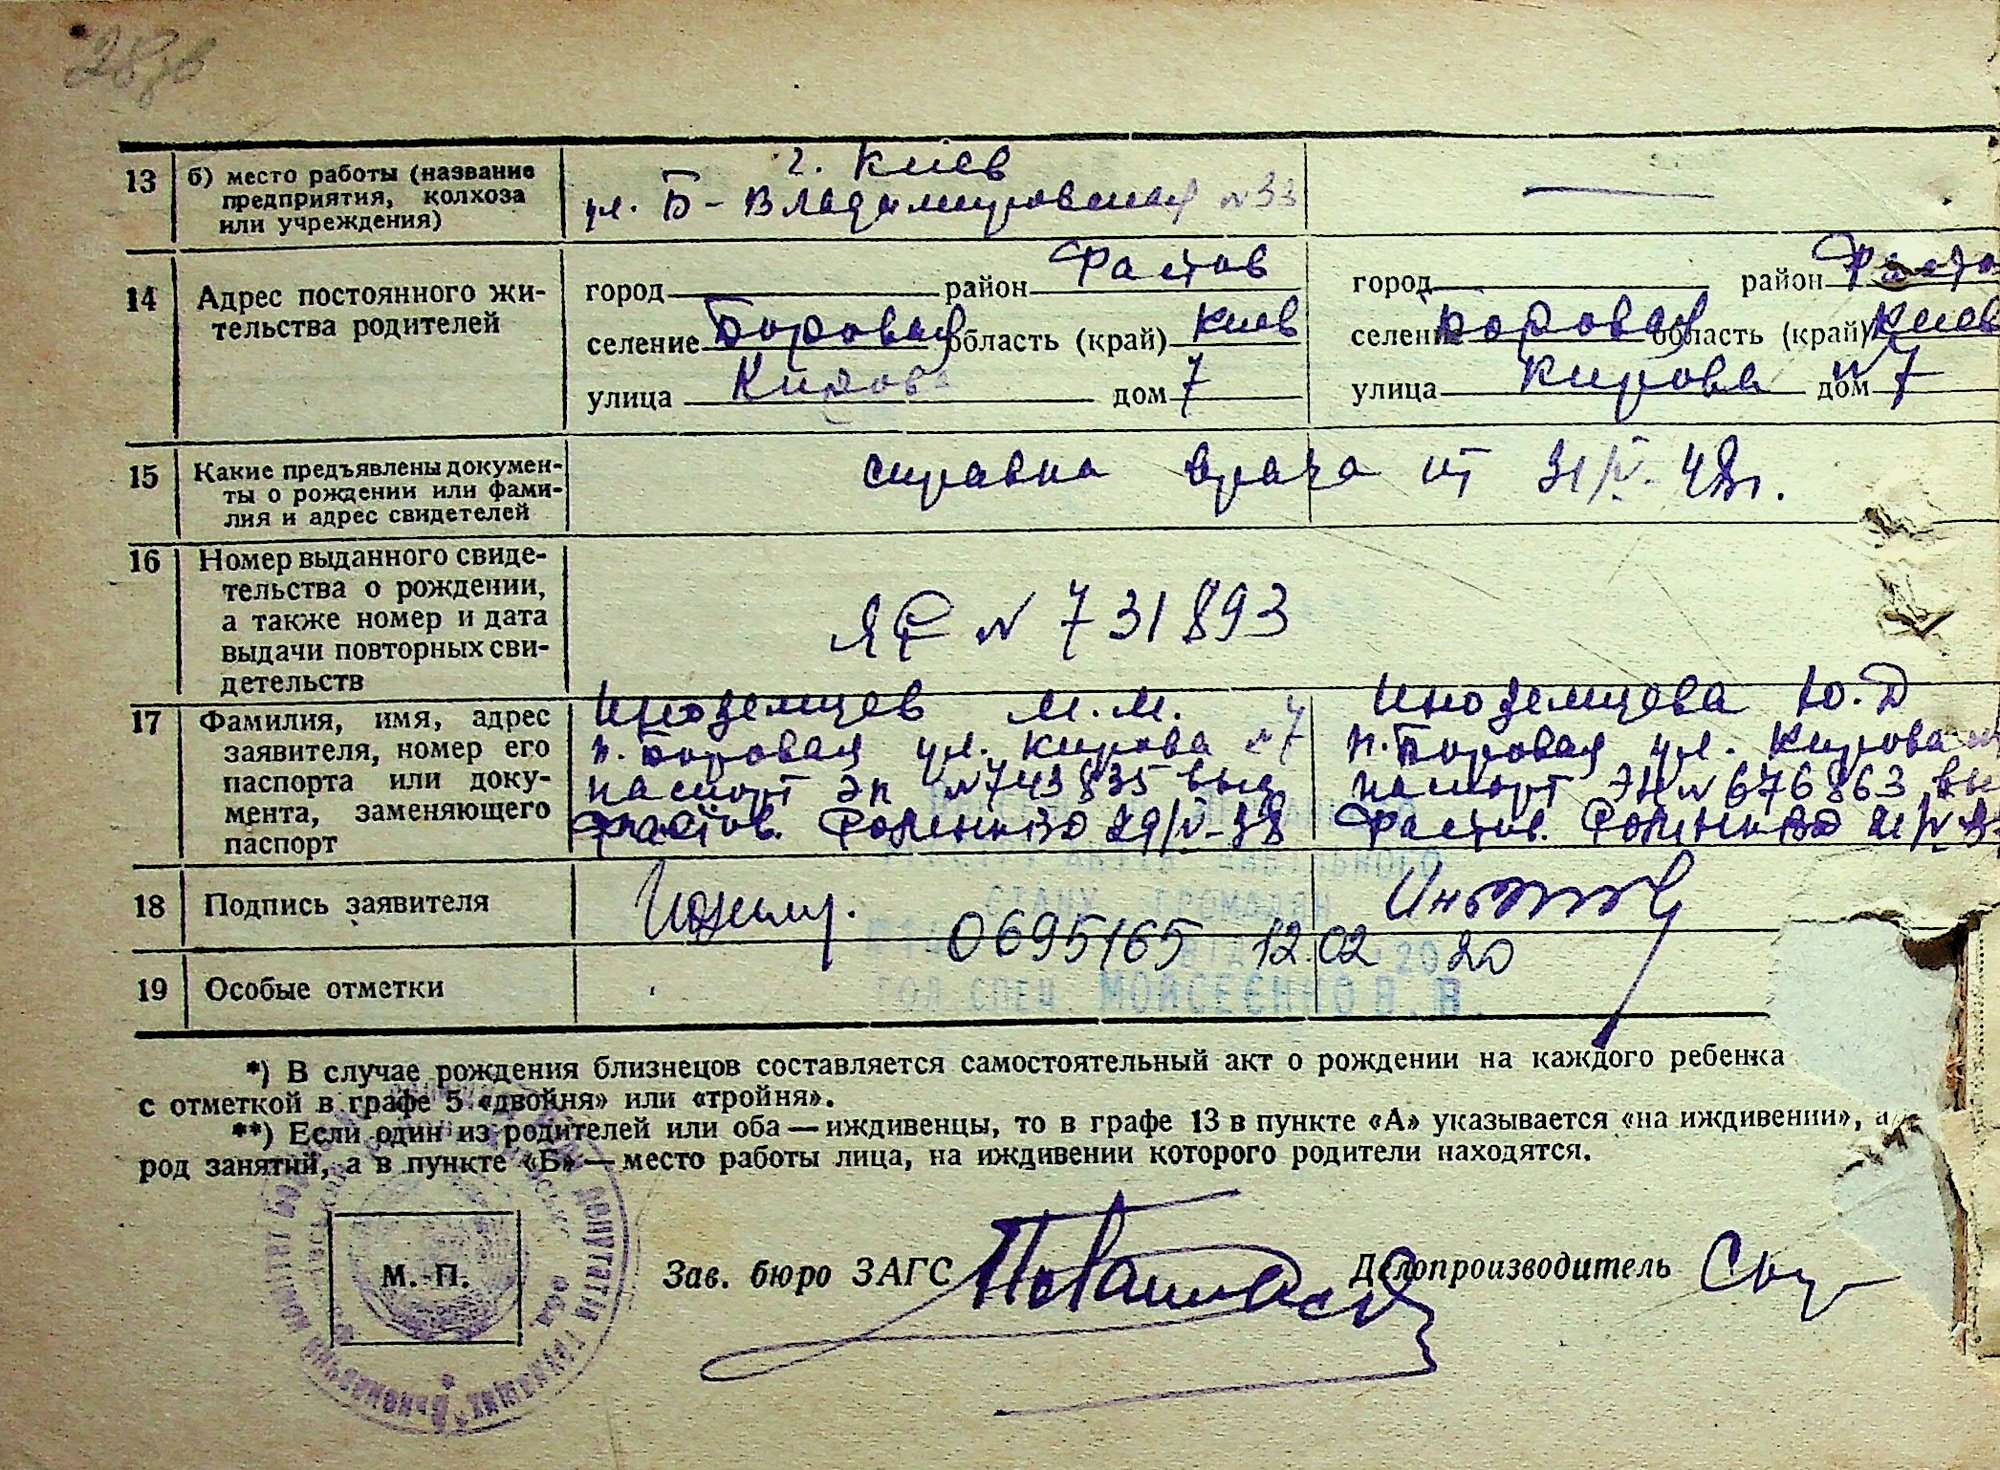 13
б) место работы (название
предприятия, колхоза
или учреждения)
г. Киев
ул. Б-Владимировская №33
14
Адрес постоянного жи-
тельства родителей
город район Фастов
селение Боровая область (край) Киев
улица Кирова дом 7
город район Фасто
селение Боровая область (край) Киев
улица Кирова дом №7
15
Какие предъявлены докумен-
ты о рождении или фами-
лия и адрес свидетелей
справка врача от 31/V-48г.
16
Номер выданного свиде-
тельства о рождении,
а также номер и дата
выдачи повторных сви-
детельств
№ 731893
17
Фамилия, имя, адрес
заявителя, номер его
паспорта или доку-
мента, заменяющего
паспорт
Иноземцев М.М.
п. Боровая ул. Кирова №7
паспорт ЭП №743835 выд
Фастов.
Иноземцева Ю.Д
п. Боровая ул. Кирова №
паспорт №676863 вы
Фастов.
18
Подпись заявителя
0695165 12.02 20
19
Особые отметки
МОЙСЕЄНКО В.В.
*) В случае рождения близнецов составляется самостоятельный акт о рождении на каждого ребенка
с отметкой в графе 5 «двойня» или «тройня».
**) Если один из родителей или оба — иждивенцы, то в графе 13 в пункте «А» указывается «на иждивении», а
род занятий, а в пункте «Б» — место работы лица, на иждивении которого родители находятся.
М. П.
Зав. бюро ЗАГС
Делопроизводитель